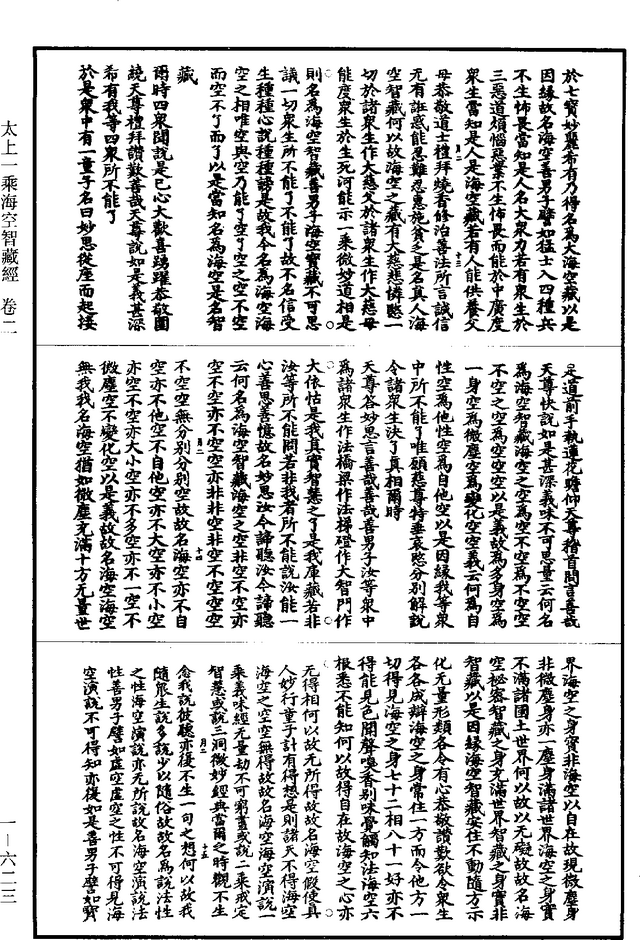 於七寶妙麗希有乃得名為大海空藏以是
因緣故名海空善男子譬如猛士入四種兵
不生怖畏當知是人名大衆力若有衆生於
三惡道煩惱惡業不生怖畏而能於中廣度
衆生當知是人是海空藏若有人能供養父
母恭敬道士禮拜燒香修治善法所言誠信
无有誑惑能忍難忍惠施貧乏是名真人海
空智藏何以故海空之藏有大慈悲憐愍一
切於諸衆生作大慈父於諸衆生作大慈母
能度衆生於生死河能示一乘微妙道相是
則名為海空智藏善男子海空寶藏不可思
議一切衆生所不能了不能了故不名信受
生種種心說種種謗是故我今名為海空海
空之相唯空與空乃能了空了空之空不空
而空不了而了以是當知名為海空是名智
藏
爾時四衆聞說是已心大歡喜踴躍恭敬圍
繞天尊禮拜讚歎善哉天尊說如是義甚深
希有我等四衆所不能了
於是衆中有一童子名曰妙思從座而起接
足道前手執蓮花瞻仰天尊稽首問言善哉
天尊快說如是甚深義味不可思量云何名
為海空智藏海空之空為空不空為不空空
不空之空為空空空以是義故為多身空為
一身空為微塵空為變化空空義云何為自
性空為他性空為自他空以是因緣我等衆
中所不能了唯願慈尊特垂哀愍分別解說
令諸衆生決了真相爾時
天尊答妙思言善哉善哉善男子汝等衆中
為諸衆生作法橋梁作法梯橙作大智門作
大依怙是我真實智慧之了是我庫藏若非
汝等所不能問若非我者所不能說汝能一
心善思善憶故名妙思汝今諦聽汝今諦聽
云何名為海空智藏海空之空非空不空亦
空不空亦不空空亦非非空非空不空空空
不空空無分別分別空故故名海空亦不自
空亦不他空不自他空亦不大空亦不小空
亦空不空亦大小空亦不多空亦不一空不
微塵空不變化空以是義故故名海空海空
無我我名海空猶如微塵充滿十方无量世
界海空之身實非海空以自在故現微塵身
非微塵身亦一塵身滿諸世界海空之身實
不滿諸國土世界何以故以无礙故故名海
空祕密智藏之身充滿世界智藏之身實非
智藏以是因緣海空智藏安住不動隨方示
化无量形類各令有心恭敬讚歎欲令衆生
各各成辯海空之身常住一方而令他方一
切得見海空之身七十二相八十一好亦不
得能見色聞聲嗅香別味覺觸知法海空六
根悉不能知何以故得自在故海空之心亦
无得相何以故无所得故故名海空假使真
人妙行童子計有得想是則諸天不得海空
海空之空空無得故故名海空海空演說一
乘義味經无量劫不可窮盡或說二乘戒定
智慧或說三洞微妙經典當爾之時觀不生
念我說彼聽亦復不生一句之想何以故我
隨衆生說多說少以隨俗故故名為說法性
之性海空演說亦无所說故名海空演說法
性善男子譬如虛空虛空之性不可得見海
空演說不可得知亦復如是善男子譬如寶
月二
十三
月二
十四
月二
十五
太上一乘海空智藏經 卷二
一—六二三